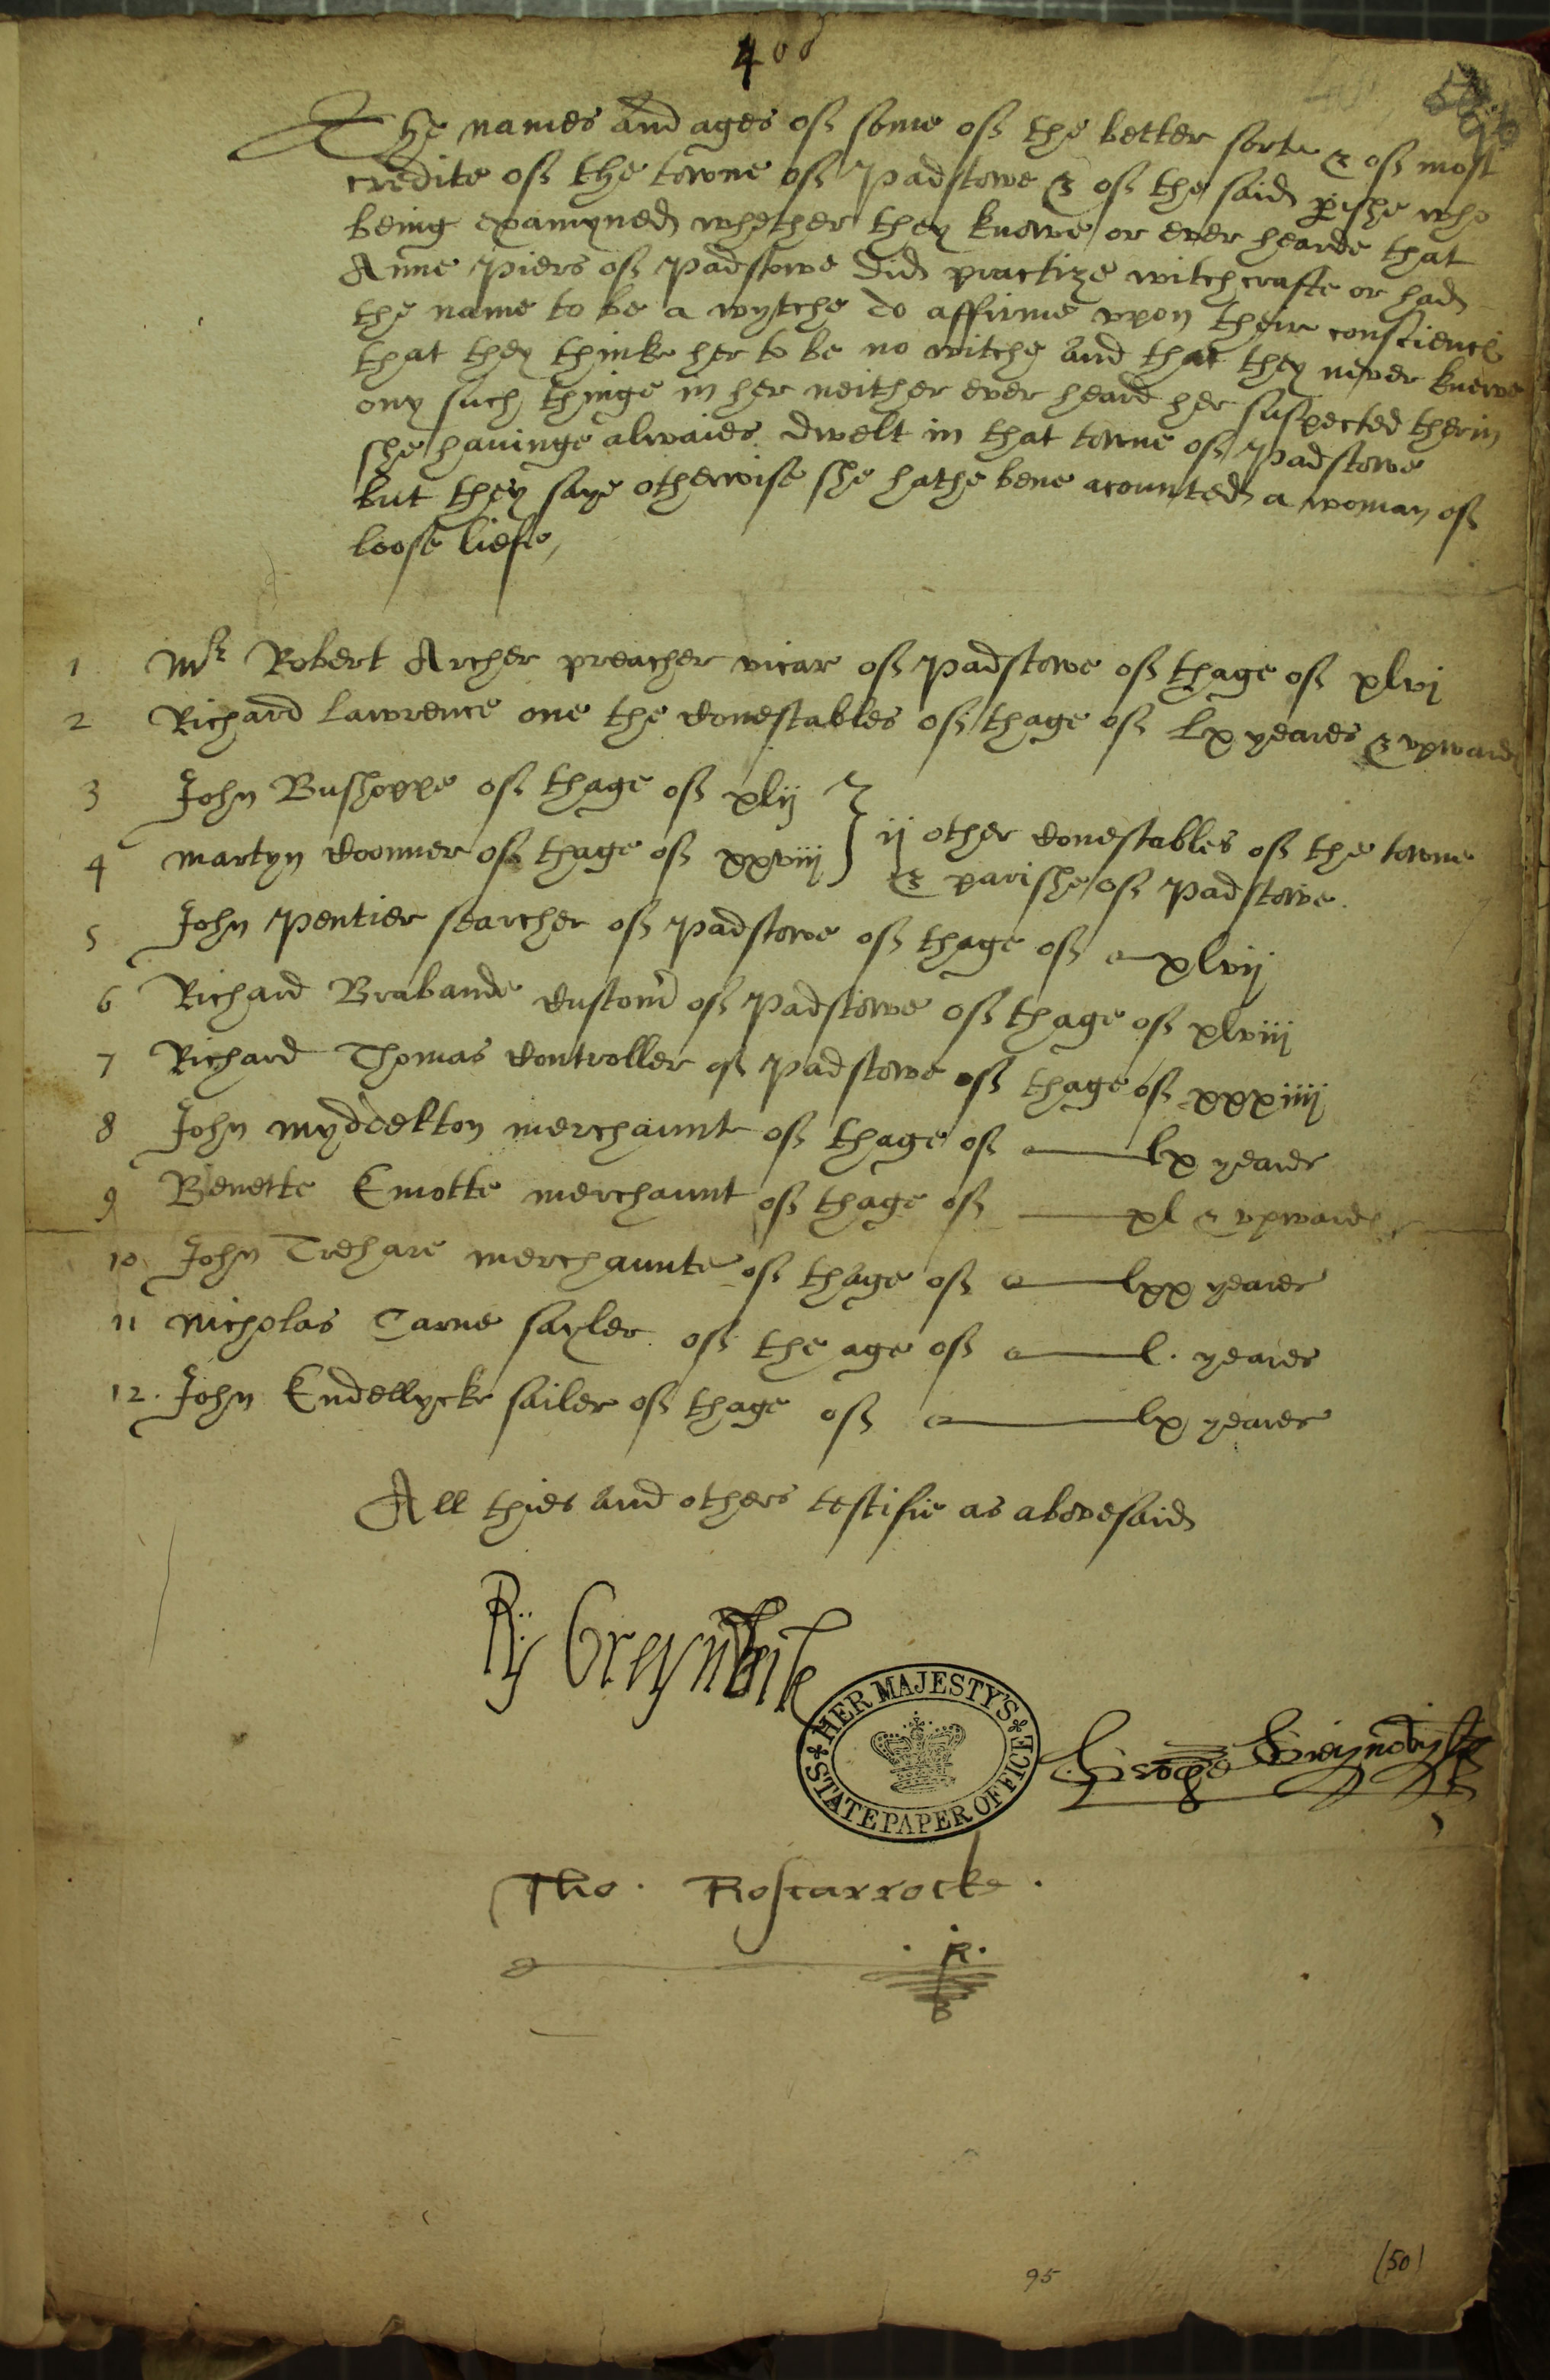 400
The names and ages of some of the better sorte & of most
credite of the towne of Padstowe & of the said pishe who
being examyned whether they knowe or ever hearde that
Anne Piers of Padstowe did practize witchcrafte or had
the name to be a wytche do affirme vpon their conscience
that they thinke her to be no witche and that they never knewe
ony such thinge in her neither ever heard her suspected therin
she havinge alwaies dwelt in that towne of Padstowe
but they saye otherwise she hathe bene acounted a woman of
loose liefe,
1 Mr Robert Archer preacher vicar of Padstowe of thage of xlvj
2 Richard Lawrence one the Conestables of thage of lx yeares & vpward
3 John Bushoppe of thage of xlij
4 Martyn Coonner of thage of xxviij } ij other Conestables of the towne
& parishe of Padstowe.
5 John Pentier searcher of Padstowe of thage of xlvij
6 Richard Brabande Custom of Padstowe of thage of xlviij
7 Richard Thomas Controller of Padstowe of thage of xxxiiij
8 John Myddelton merchaunt of thage of lx yeares
9 Benette Emotte merchaunt of thage of xl & vpwardes
10 John Trehare merchaunte of thage of lxx yeares
11 Nicholas Carne sayler of the age of l. yeares
12. John Endellycke sailer of thage of lx yeares
All thies and others testifie as abovesaid
Ry Greynvile
HER MAJESTY'S STATE PAPER OFFICE
George Greynvyle
Tho. Roscarrocke.
.R.
95
(50)